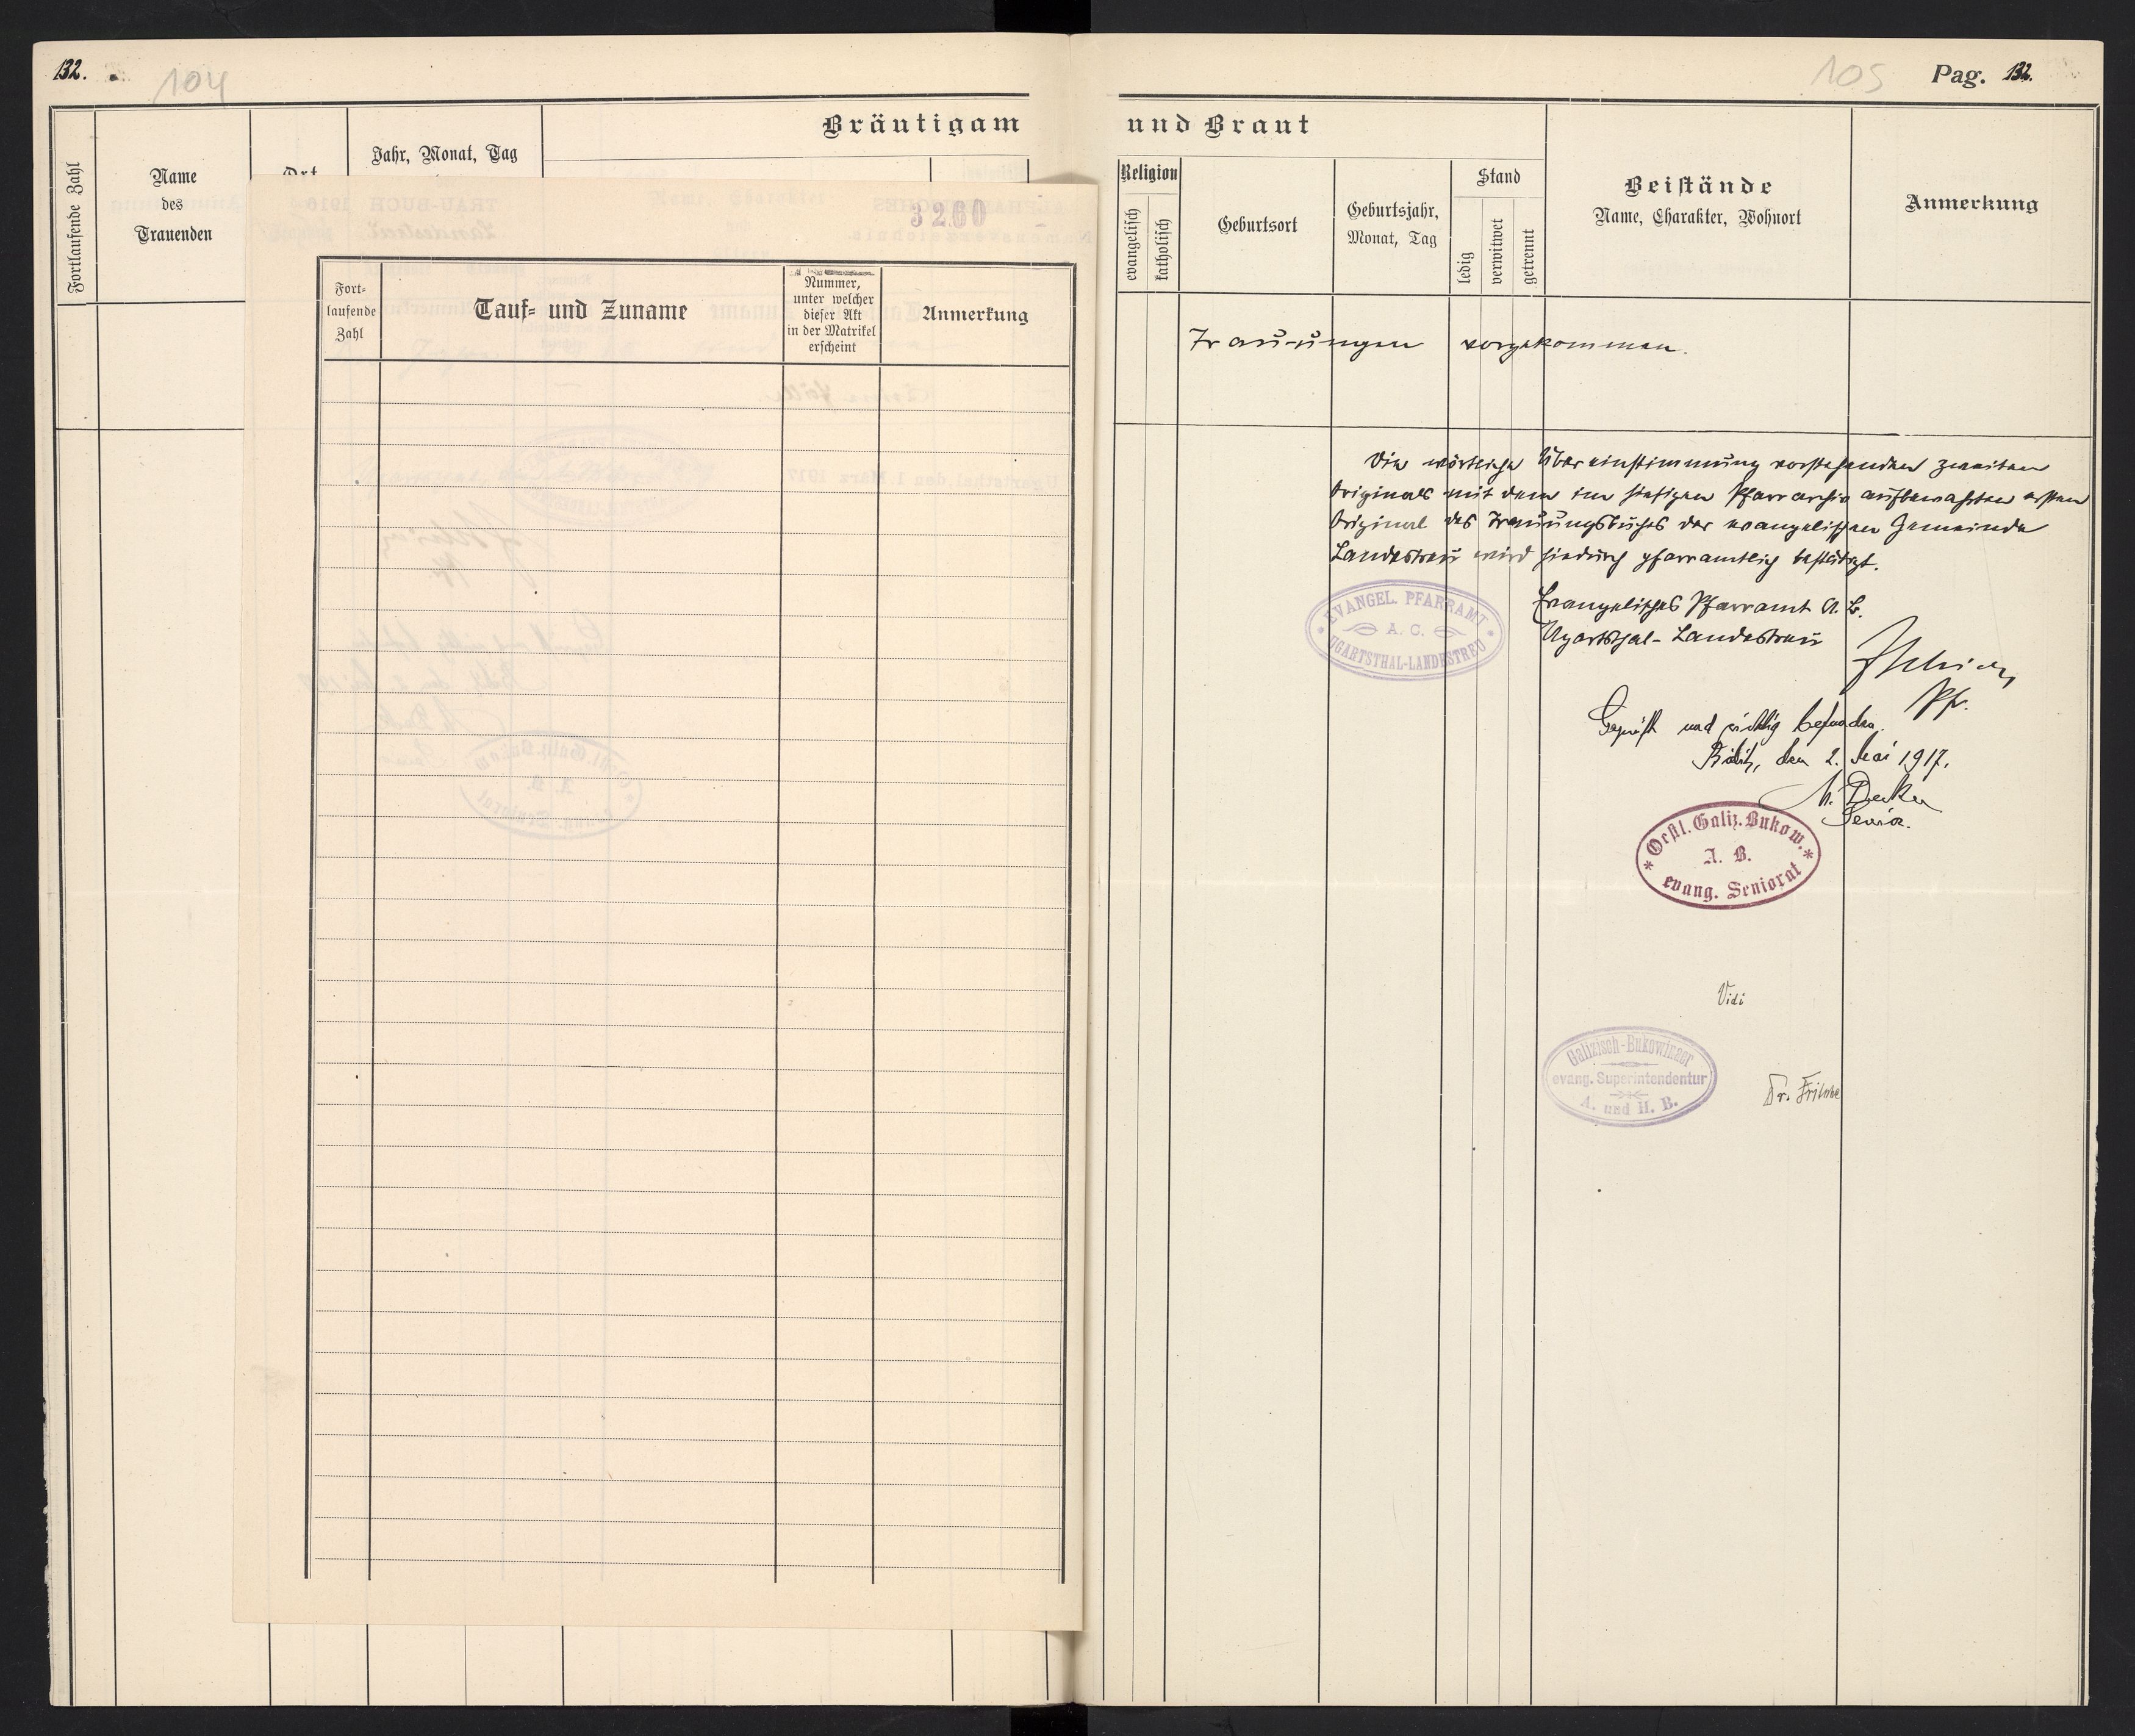 132.
104
Fortlaufende Zahl
Name
des
Trauenden
Ort
Jahr, Monat, Tag
Bräutigam
3260
Fort-
laufende
Zahl
Tauf- und Zuname
Nummer,
unter welcher
dieser Akt
in der Matrikel
erscheint
Anmerkung
105 Pag. 132.
und Braut
Religion
evangelisch
katholisch
Geburtsort
Geburtsjahr,
Monat, Tag
Stand
ledig
verwitwet
getrennt
Beistände
Name, Charakter, Wohnort
Anmerkung
Trauungen vorgekommen.
Die wörtliche Übereinstimmung vorstehenden zweiten
Originals mit dem im hiesigen Pfarrarchiv aufbewahrten ersten
Original des Trauungsbuches der evangelischen Gemeinde
Landestreu wird hiedurch pfarramtlich bestätigt.
EVANGEL. PFARRAMT
A. C.
UGARTSTHAL-LANDESTREU
Evangelisches Pfarramt A. B.
Ugartsthal-Landestreu
Pfr.
Geprüft und richtig befunden.
den 2. Mai 1917.
Decker
Senior.
Oestl. Galiz. Bukow.
A. B.
evang. Seniorat
Vidi
Galizisch-Bukowinaer
evang. Superintendentur
A. und H. B.
Dr. Fritsche